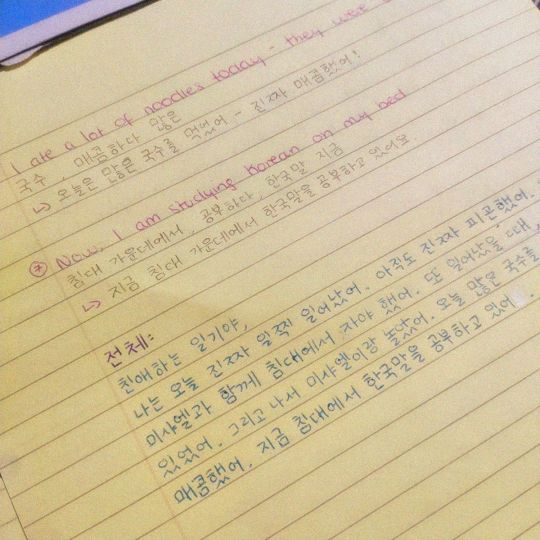 I ate a lot of noodles today - they were
국수, 매콤하다, 많은
↳ 오늘은 많은 국수를 먹었어 - 진짜 매콤했어!
⑦ Now, I am studying korean on my bed
침대 가운데에서, 공부하다, 한국말 지금
↳ 지금 침대 가운데에서 한국말을 공부하고 있어요
전체:
친애하는 일기야,
나는 오늘 진짜 일찍 일어났어. 아직도 진짜 피곤했어.
미샤엘과 함께 침대에서 자야 했어. 또 일어났을 때,
있었어. 그리고 나서 미샤엘이랑 놀았어. 오늘 많은 국수를
매콤했어. 지금 침대에서 한국말을 공부하고 있어.